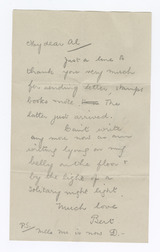 My dear Al
Just a line to
thank you very much
for sending letter, stamps
books node. The
letter just arrived.
Can't write
any more now as am
writing lying on my
belly on the floor &
by the light of a
solitary night light.
Much love
Bert
P.S. is now